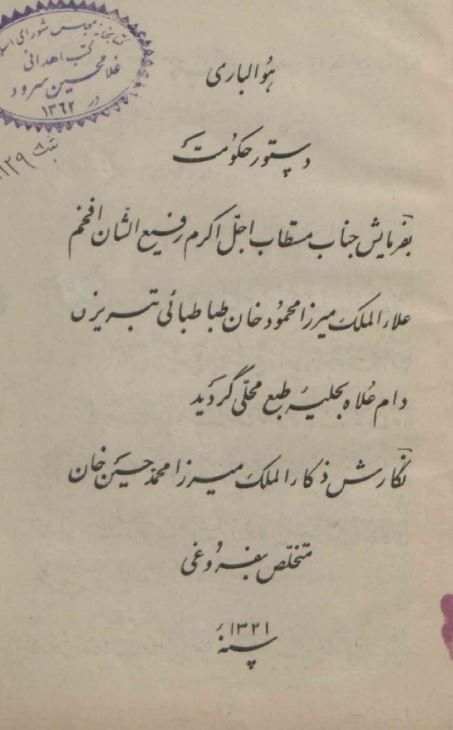 کتابخانه مجلس شورای اسلامی
کتب اهدائی
غلامحسین سرود
در ۱۳۶۲
ثبت
هوالباری
دستور حکومت
بفرمایش جناب مستطاب اجل اکرم رفیع الشان افخم
علاءالملک میرزا محمود خان طباطبائی تبریزی
دام علاه بحلیه طبع محلی گردید
نگارش ذکاءالملک میرزا محمد حسین خان
متخلص بفروغی
۱۳۲۱
سنه